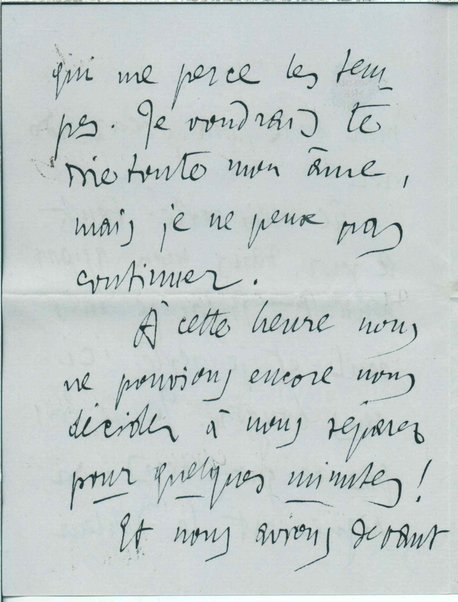 qui me perce les tem-
pes. Je voudrais te
dire toute mon âme,
mais je ne peux pas
continuer.
À cette heure nous
ne pouvions encore nous
décider à nous séparer
pour quelques minutes !
Et nous avions devant